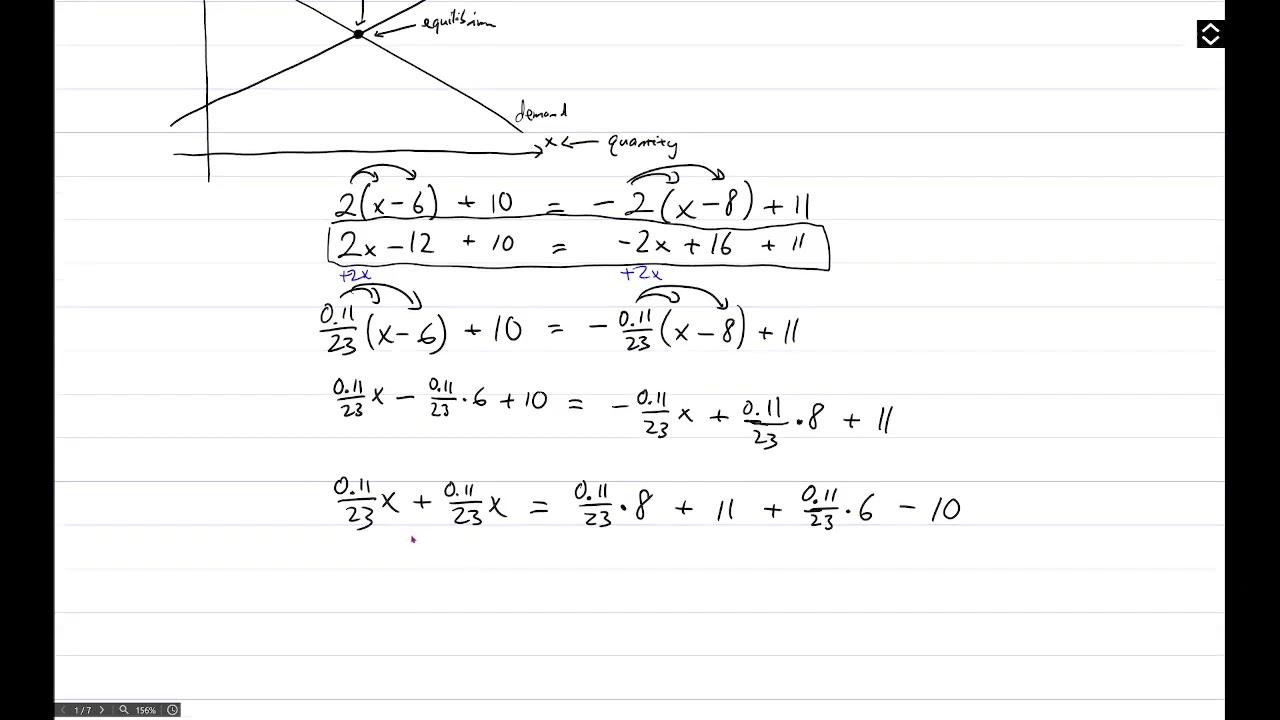 ← equilibrium
demand
x ← quantity
2(x-6) + 10 = -2(x-8) + 11
2x - 12 + 10 = -2x + 16 + 11
+2x +2x
0.11/23 (x-6) + 10 = - 0.11/23 (x-8) + 11
0.11/23 x - 0.11/23 · 6 + 10 = - 0.11/23 x + 0.11/23 · 8 + 11
0.11/23 x + 0.11/23 x = 0.11/23 · 8 + 11 + 0.11/23 · 6 - 10
1/7 156%